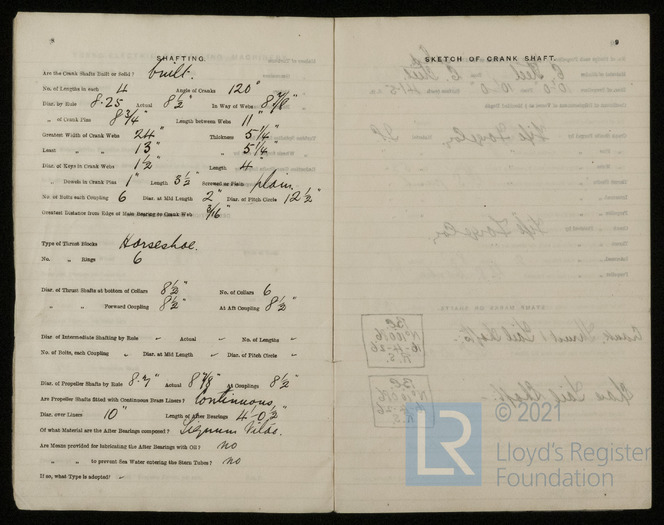 SHAFTING.
Are the Crank Shafts Built or Solid? built.
No. of Lengths in each 4 Angle of Cranks 120°
Diar. by Rule 8.25 Actual 8½" In Way of Webs 8⅞"
" of Crank Pins 8¾" Length between Webs 11"
Greatest Width of Crank Webs 24" Thickness 5¼"
Least " " 13" " 5¼"
Diar. of Keys in Crank Webs 1½" Length 4"
" Dowels in Crank Pins 1" Length 3½" Screwed or Plain plain
No. of Bolts each Coupling 6 Diar. at Mid Length 2" Diar. of Pitch Circle 12½"
Greatest Distance from Edge of Main Bearing to Crank Web 3/16"
Type of Thrust Blocks Horseshoe.
No. " Rings 6
Diar. of Thrust Shafts at bottom of Collars 8½" No. of Collars 6
" " Forward Coupling 8½" At Aft Coupling 8½"
Diar. of Intermediate Shafting by Rule – Actual – No. of Lengths –
No. of Bolts, each Coupling – Diar. at Mid Length – Diar. of Pitch Circle –
Diar. of Propeller Shafts by Rule 8.7" Actual 8⅞" At Couplings 8½"
Are Propeller Shafts fitted with Continuous Brass Liners? Continuous
Diar. over Liners 10" Length of After Bearings 4'-0½"
Of what Material are the After Bearings composed? Lignum Vitæ.
Are Means provided for lubricating the After Bearings with Oil? no
" " to prevent Sea Water entering the Stern Tubes? no
If so, what Type is adopted? –
9
SKETCH OF CRANK SHAFT.
LR © 2021
Lloyd's Register
Foundation